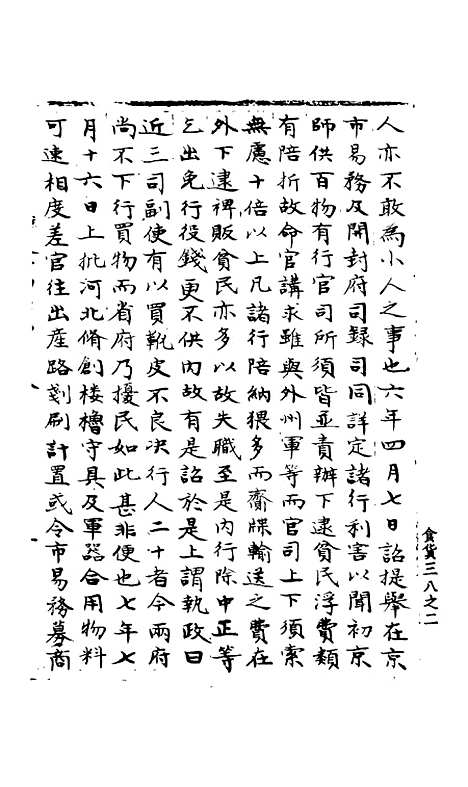 人亦不敢為小人之事也六年四月七日詔提舉在京
市易務及開封府司録司同詳定諸行利害以聞初京
師供百物有行官司所須皆並責辦下逮貧民浮費類
有陪折故命官講求雖與外州軍等而官司上下須索
無慮十倍以上凡諸行陪納猥多而齎牒輸送之費在
外下逮裨販貧民亦多以故失職至是內行除中正等
乞出免行役錢更不供內故有是詔於是上謂執政曰
近三司副使有以買靴皮不良決行人二十者今兩府
尚不下行買物而省府乃擾民如此甚非便也七年七
月十六日上批河北脩創樓櫓守具及軍器合用物料
可速相度差官往出産路剗刷計置或令市易務募商
食貨三八之二